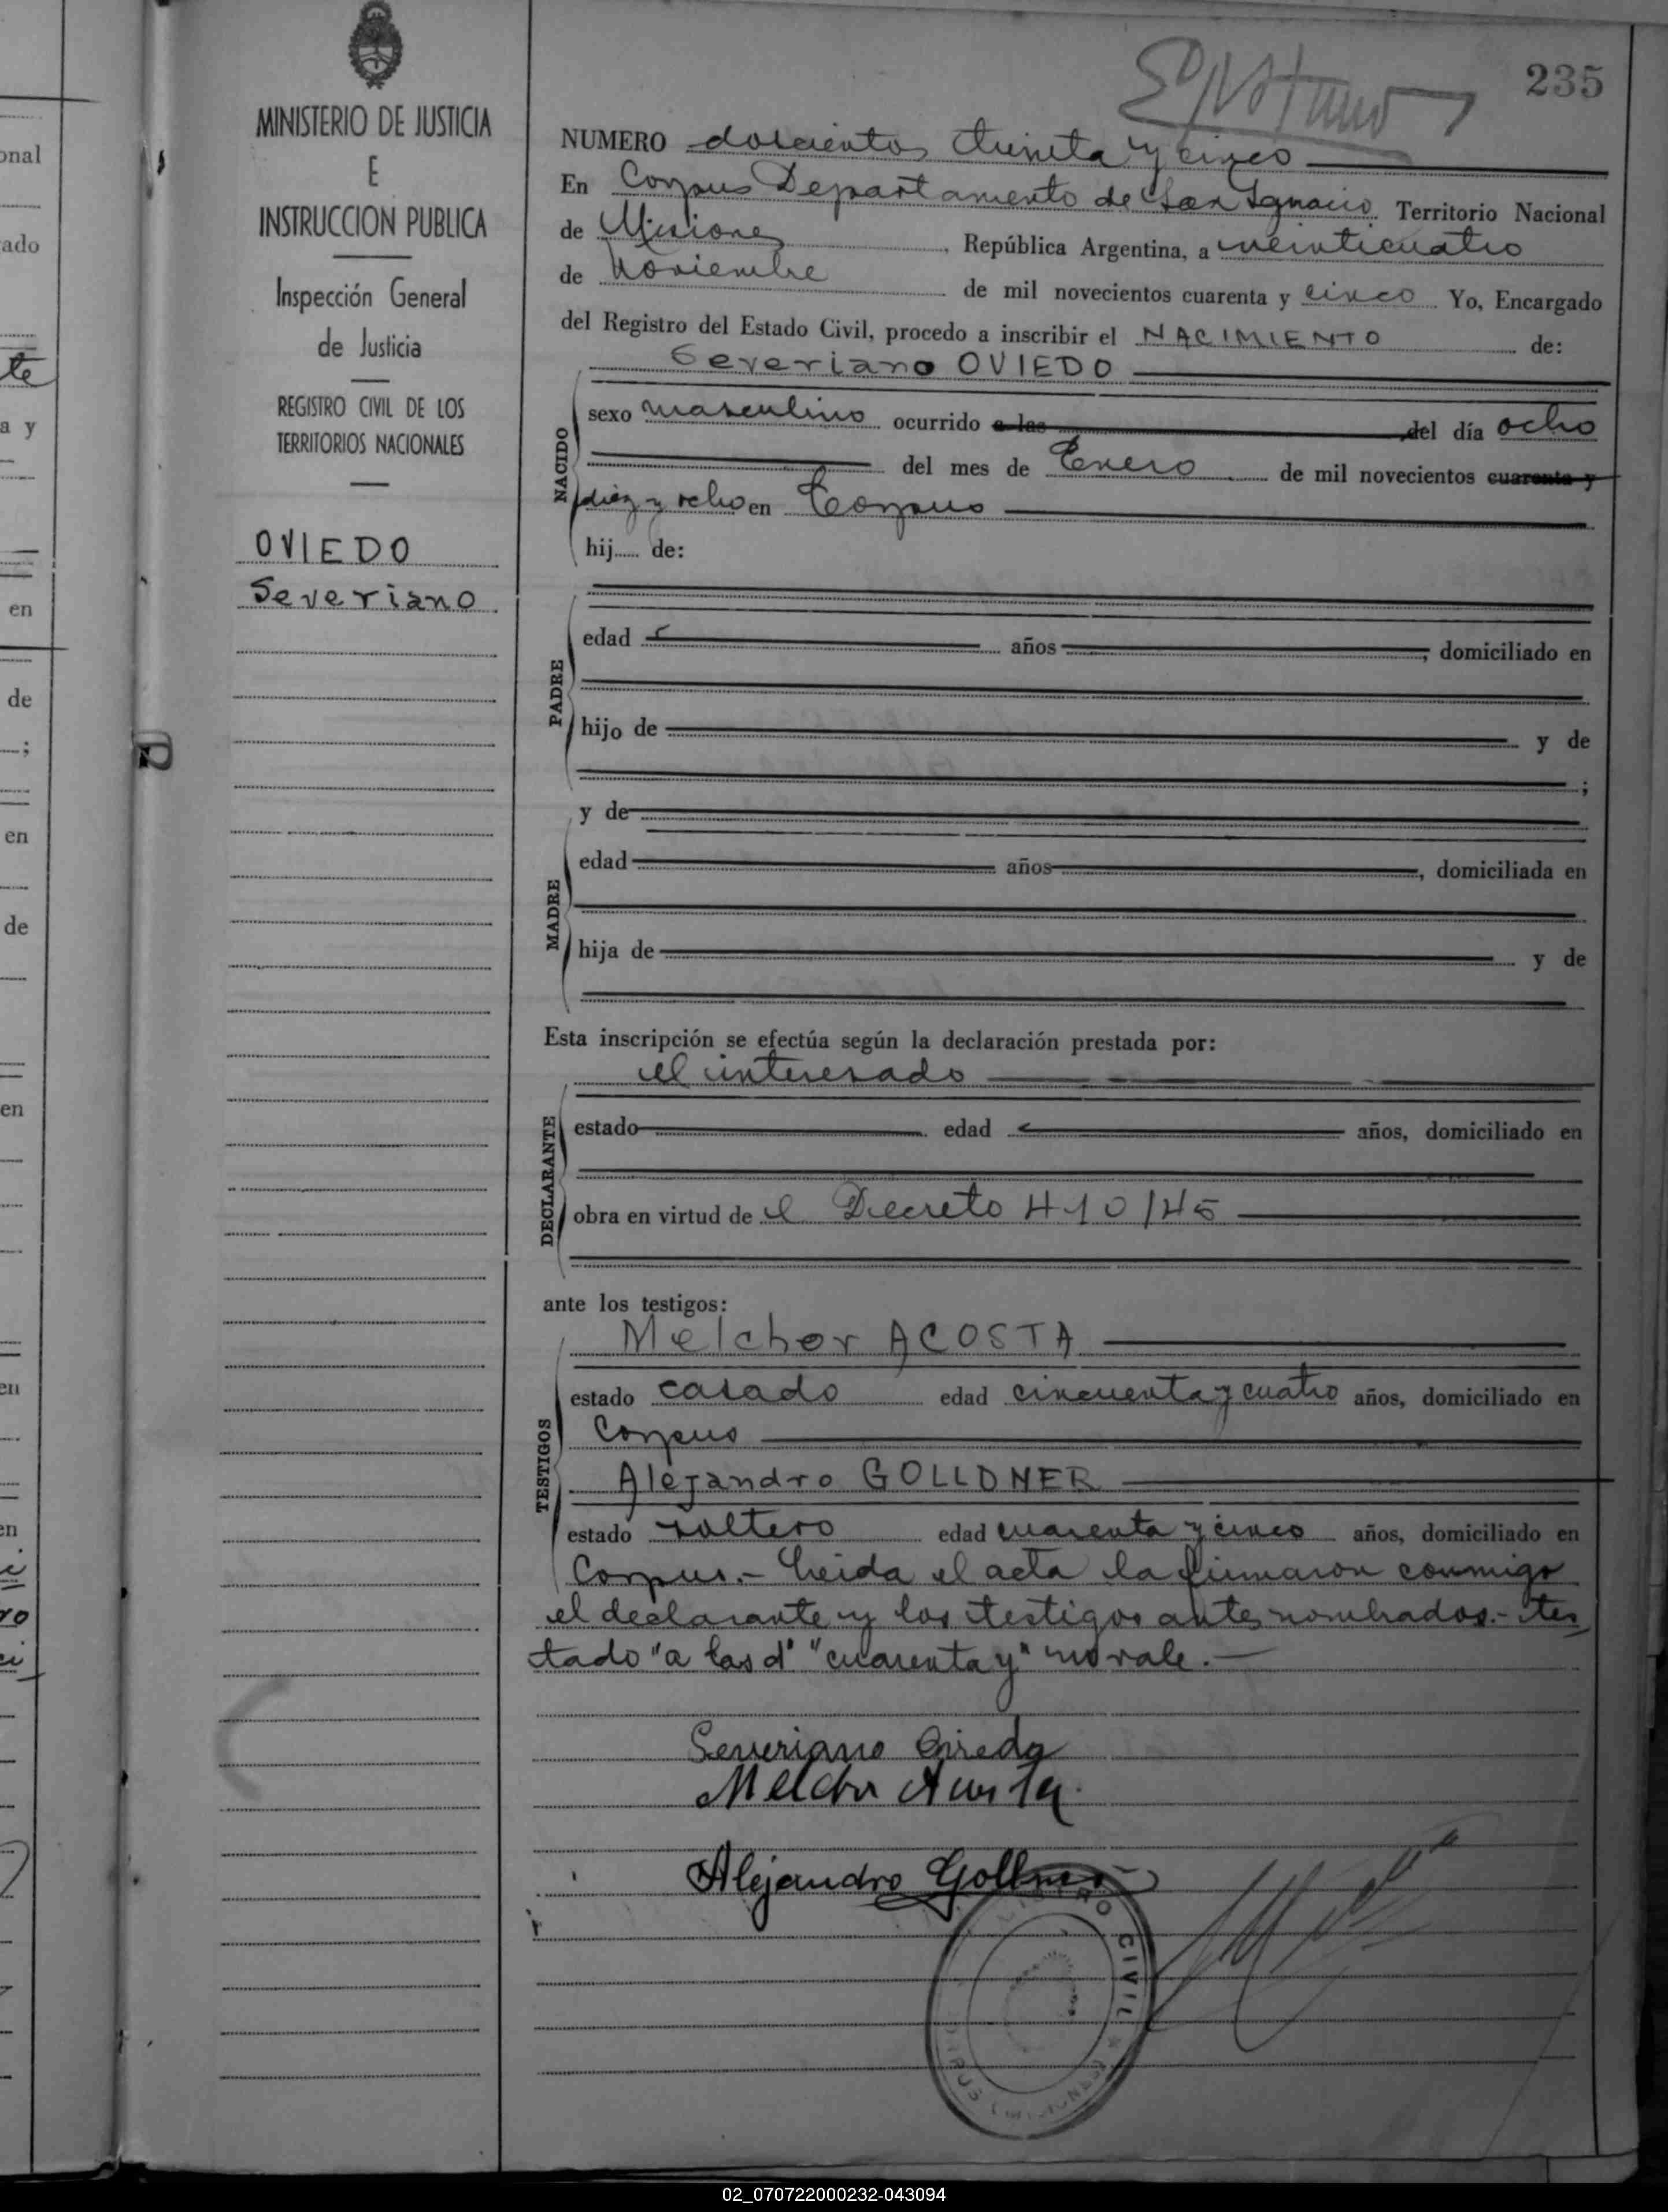 235
MINISTERIO DE JUSTICIA
E
INSTRUCCION PUBLICA
Inspección General
de Justicia
REGISTRO CIVIL DE LOS
TERRITORIOS NACIONALES
OVIEDO
Severiano
NUMERO doscientos treinta y cinco
En Corpus Departamento de San Ignacio Territorio Nacional
de Misiones, República Argentina, a veinticuatro
de Noviembre de mil novecientos cuarenta y cinco Yo, Encargado
del Registro del Estado Civil, procedo a inscribir el NACIMIENTO de:
Severiano OVIEDO
NACIDO
sexo masculino ocurrido a las del día ocho
del mes de Enero de mil novecientos cuarenta y
diez y ocho en Corpus
hij de:
PADRE
edad años, domiciliado en
hijo de y de
;
y de
MADRE
edad años, domiciliada en
hija de y de
Esta inscripción se efectúa según la declaración prestada por:
el interesado
DECLARANTE
estado edad años, domiciliado en
obra en virtud de el Decreto 410/45
ante los testigos:
Melchor ACOSTA
TESTIGOS
estado casado edad cincuenta y cuatro años, domiciliado en
Corpus
Alejandro GOLLDNER
estado soltero edad cuarenta y cinco años, domiciliado en
Corpus.- Leida el acta la firmaron conmigo
el declarante y los testigos antes nombrados.- tes
tado "a las d" "cuarenta y" no vale.-
Severiano Oviedo
Melchor Acosta
Alejandro
REGISTRO CIVIL
02_070722000232-043094